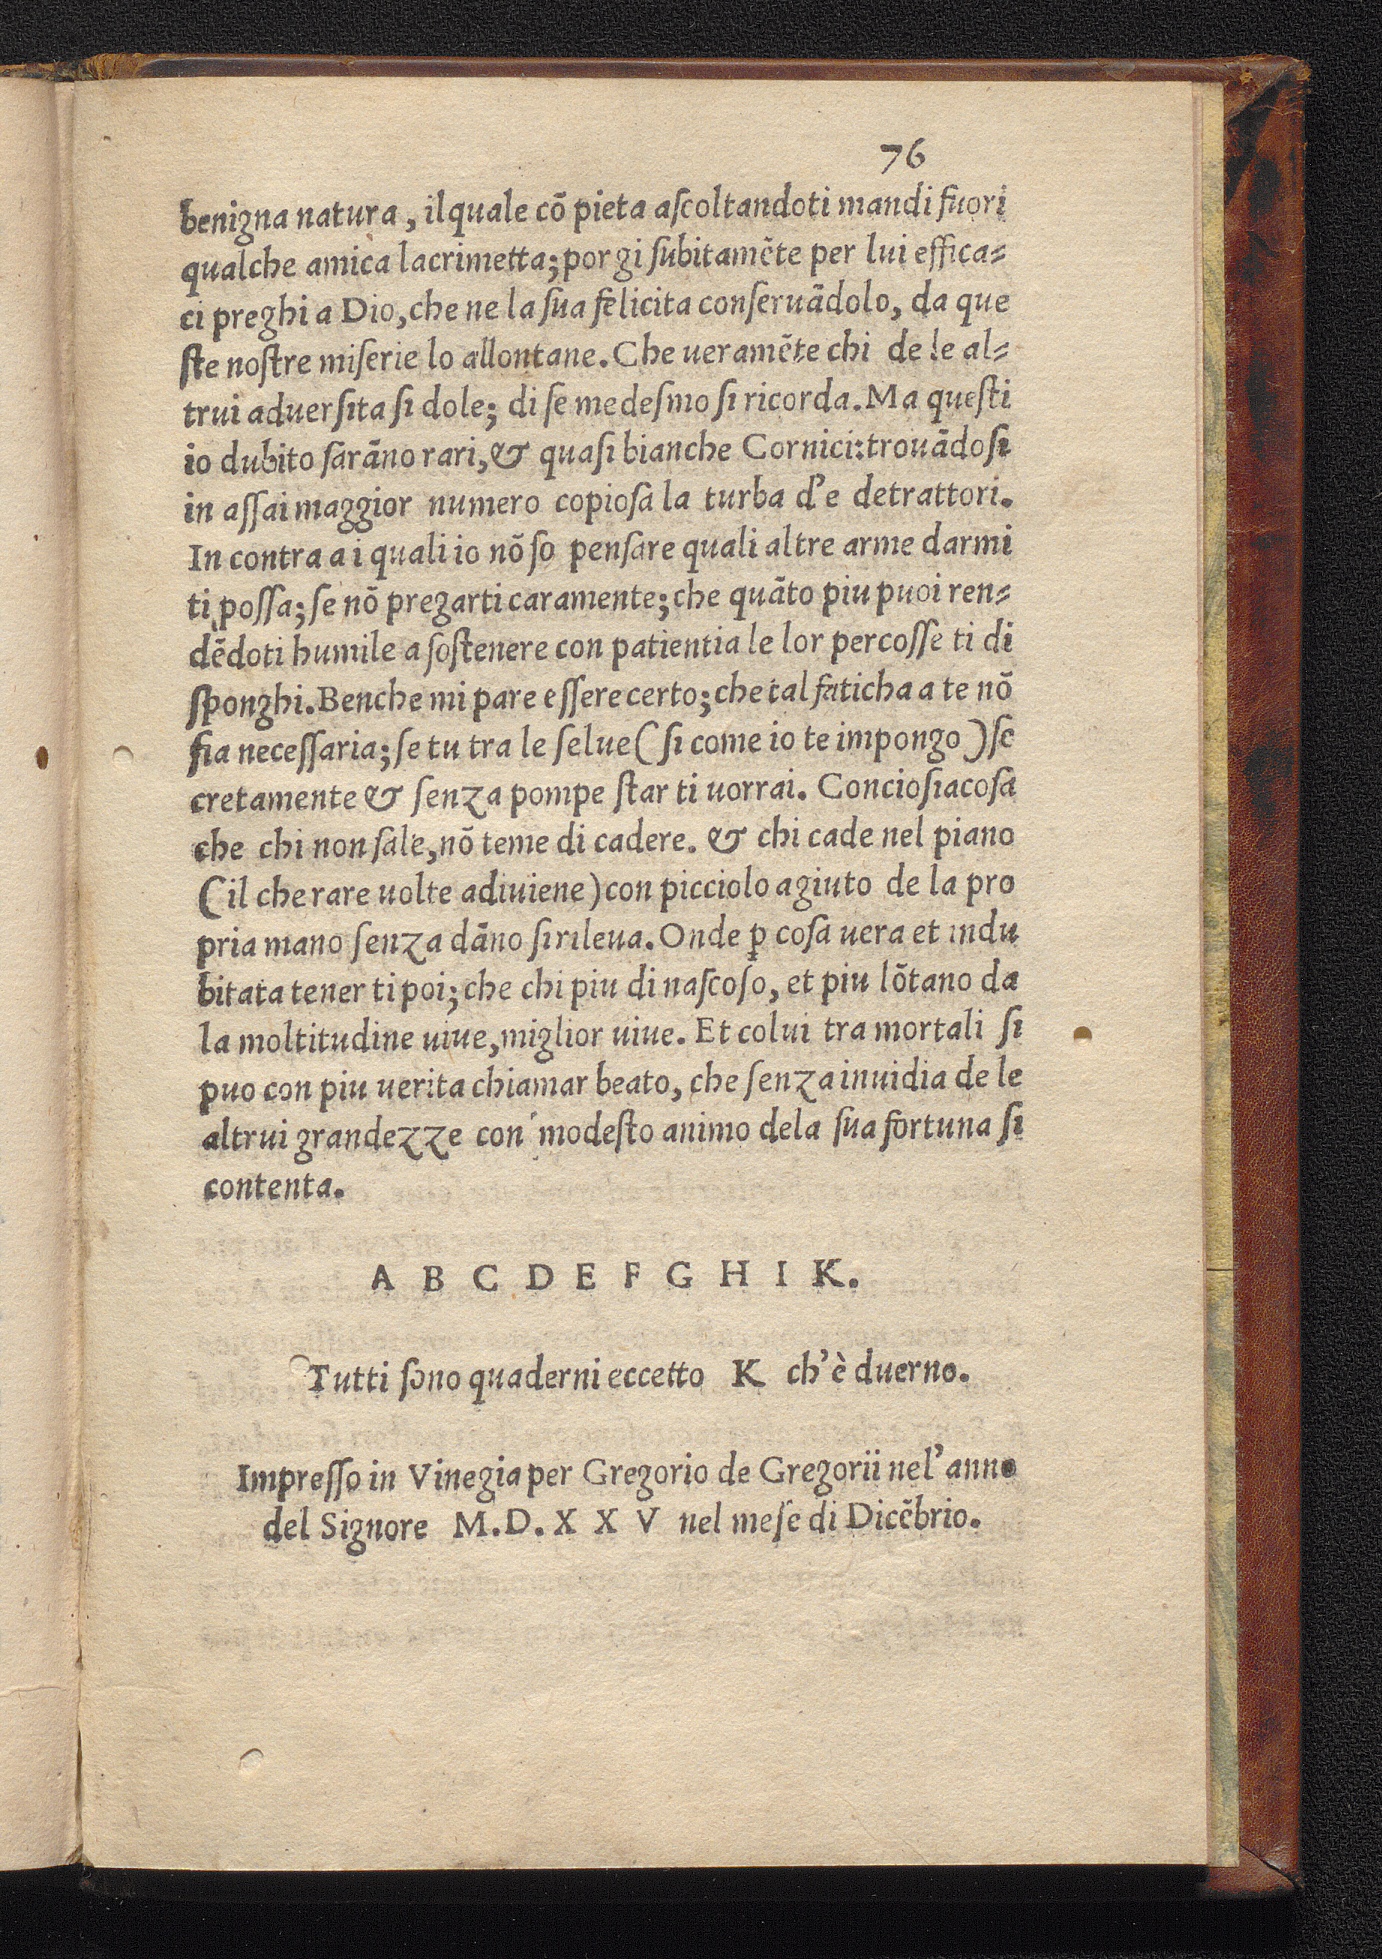 76
benigna natura, il quale cō pieta aſcoltandoti mandi fuori
qualche amica lacrimetta; porgi ſubitamēte per lui effica-
ci preghi a Dio, che ne la ſua felicita conſeruādolo, da que
ſte noſtre miſerie lo allontane. Che ueramēte chi de le al-
trui aduerſita ſi dole; di ſe medeſmo ſi ricorda. Ma queſti
io dubito ſarāno rari, & quaſi bianche Cornici: trouādoſi
in aſſai maggior numero copioſa la turba d'e detrattori.
In contra a i quali io nō ſo penſare quali altre arme darmi
ti poſſa; ſe nō pregarti caramente; che quāto piu puoi ren-
dēdoti humile a ſoſtenere con patientia le lor percoſſe ti di
ſponghi. Benche mi pare eſſere certo; che tal faticha a te nō
fia neceſſaria; ſe tu tra le ſelue (ſi come io te impongo) ſe
cretamente & ſenza pompe ſtar ti uorrai. Concioſiacoſa
che chi non ſale, nō teme di cadere. & chi cade nel piano
(il che rare uolte adiuiene) con picciolo agiuto de la pro
pria mano ſenza dāno ſi rileua. Onde ꝑ coſa uera et indu
bitata tener ti poi; che chi piu di naſcoſo, et piu lōtano da
la moltitudine uiue, miglior uiue. Et colui tra mortali ſi
puo con piu uerita chiamar beato, che ſenza inuidia de le
altrui grandezze con modeſto animo dela ſua fortuna ſi
contenta.
A B C D E F G H I K.
Tutti ſono quaderni eccetto K ch'è duerno.
Impreſſo in Vinegia per Gregorio de Gregorii nel'anno
del Signore M.D.X X V nel meſe di Dicēbrio.